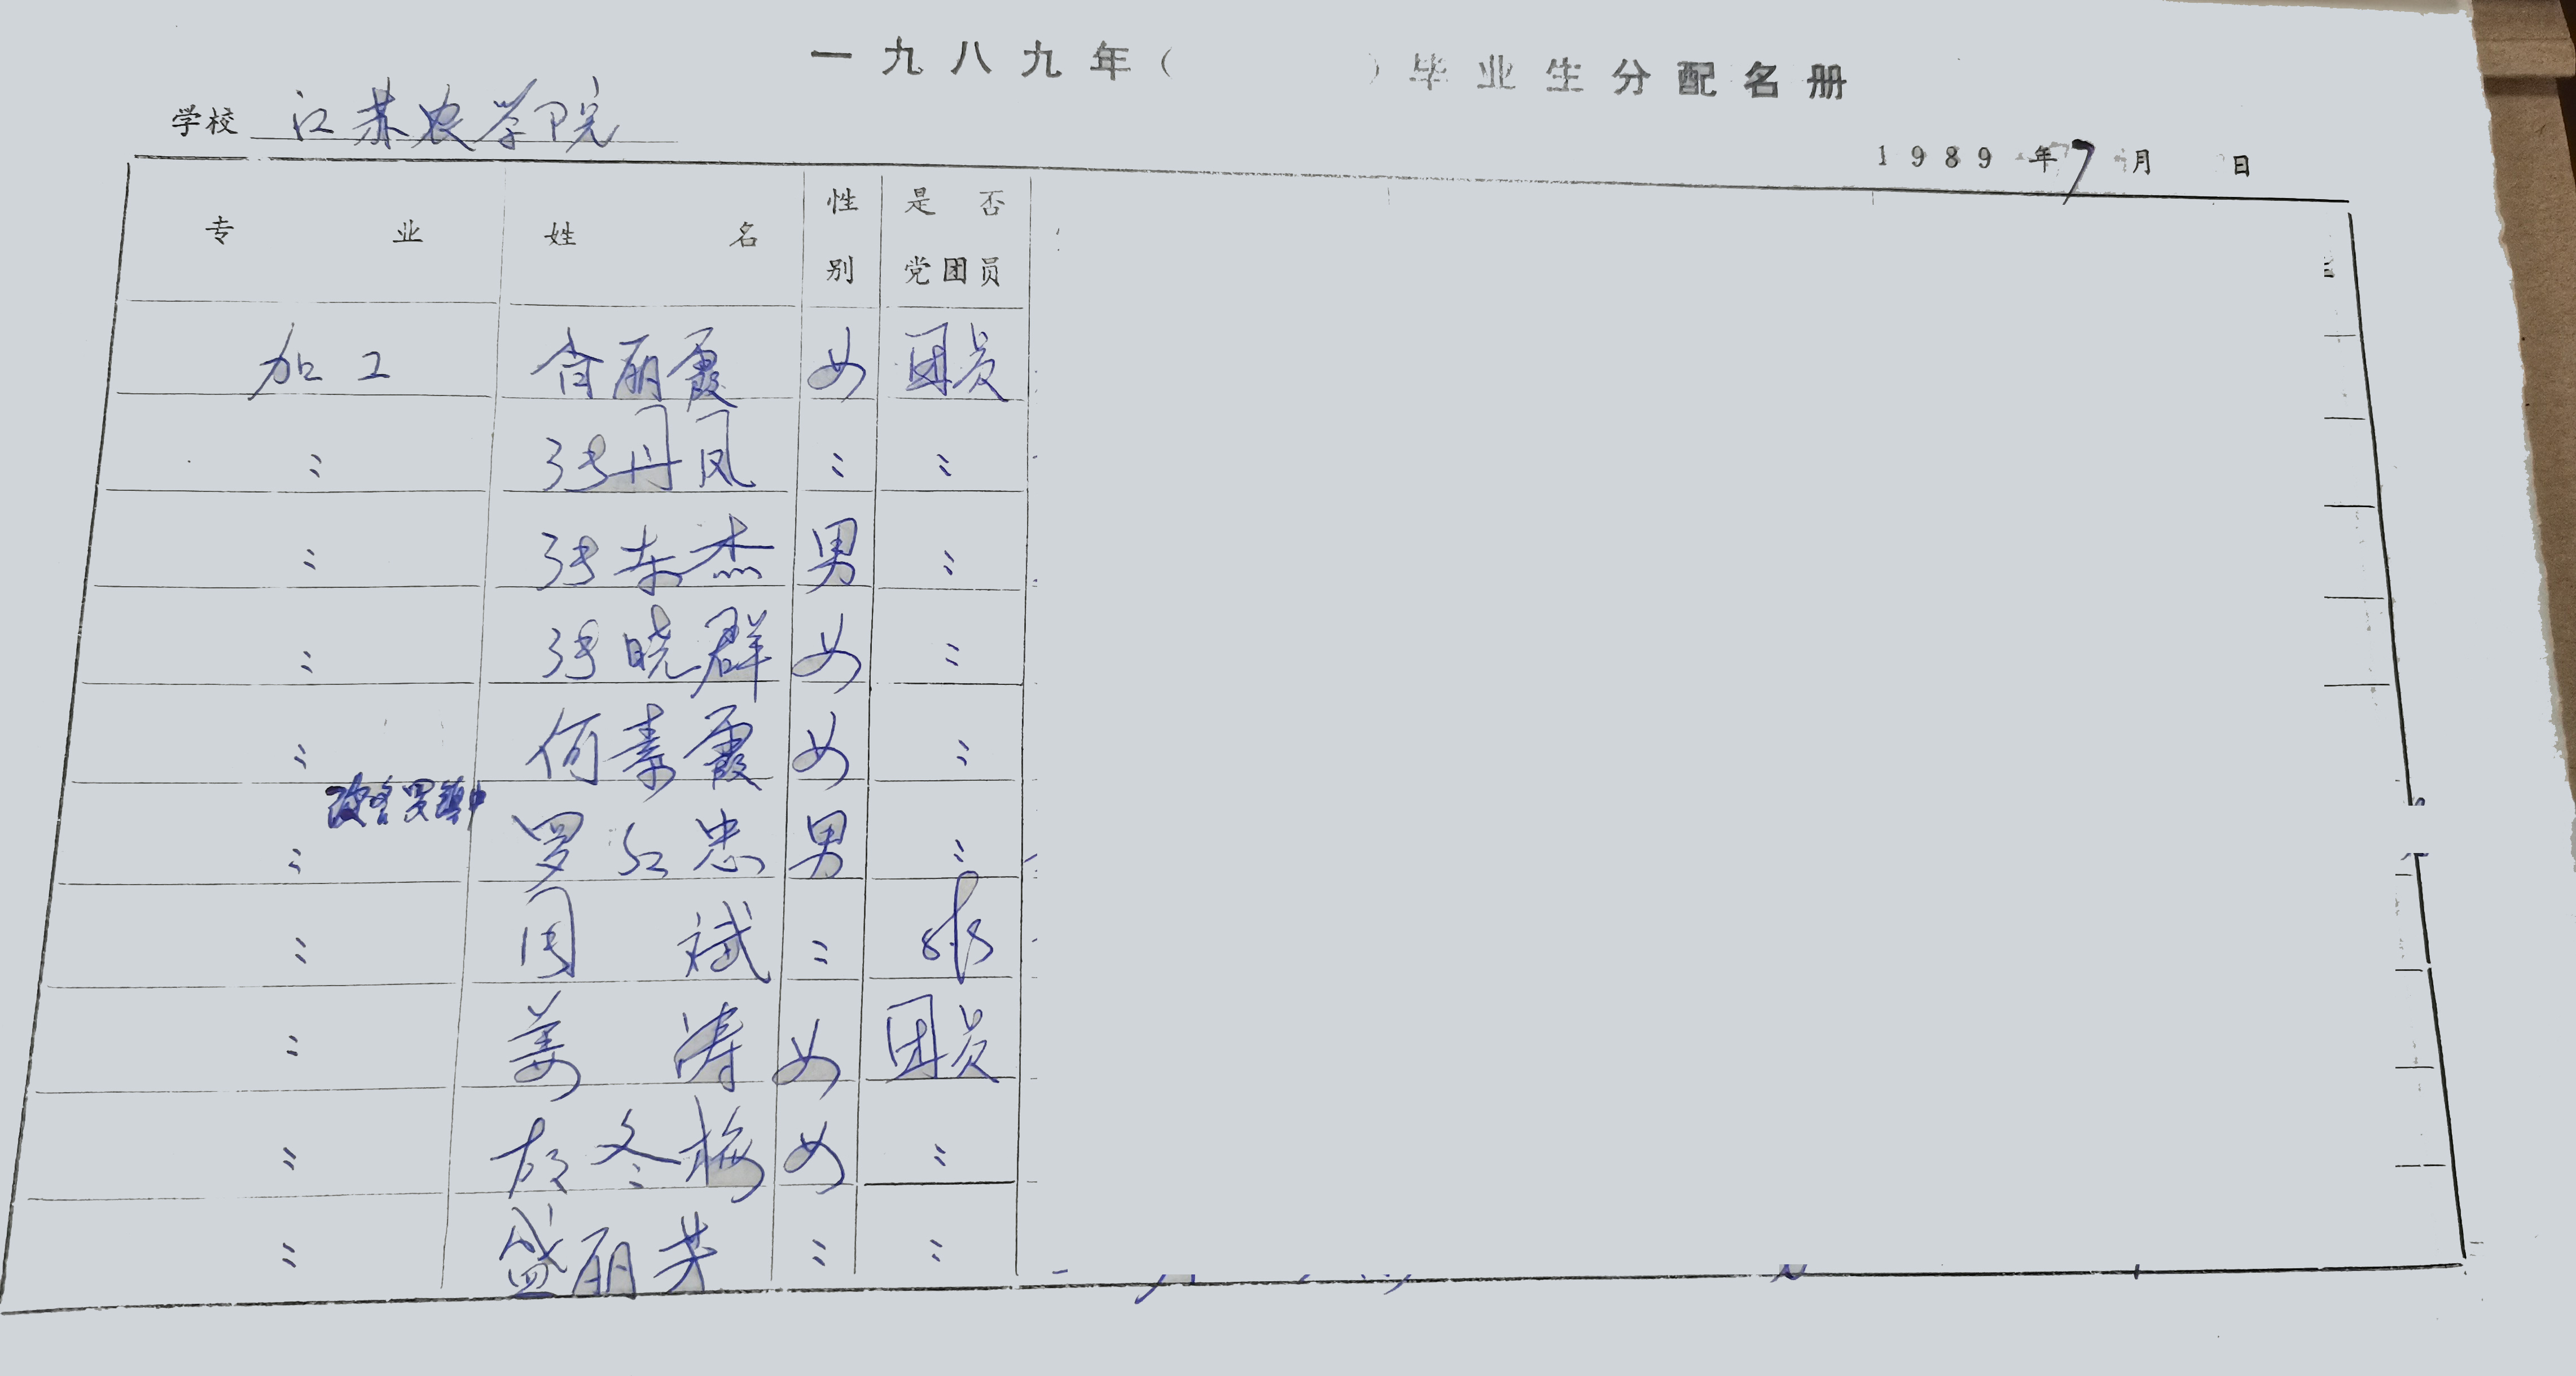 一九八九年（ ）毕业生分配名册
学校 江苏农学院
1989年7月 日
专业 姓名 性别 是否党团员
加工 肖丽霞 女 团员
〃 张丹凤 〃 〃
〃 张东杰 男 〃
〃 张晓群 女 〃
〃 何素霞 女 〃
改名罗镇中
〃 罗红忠 男 〃
〃 周斌 〃
〃 姜涛 女 团员
〃 顾冬梅 女 〃
〃 盛丽芳 〃 〃